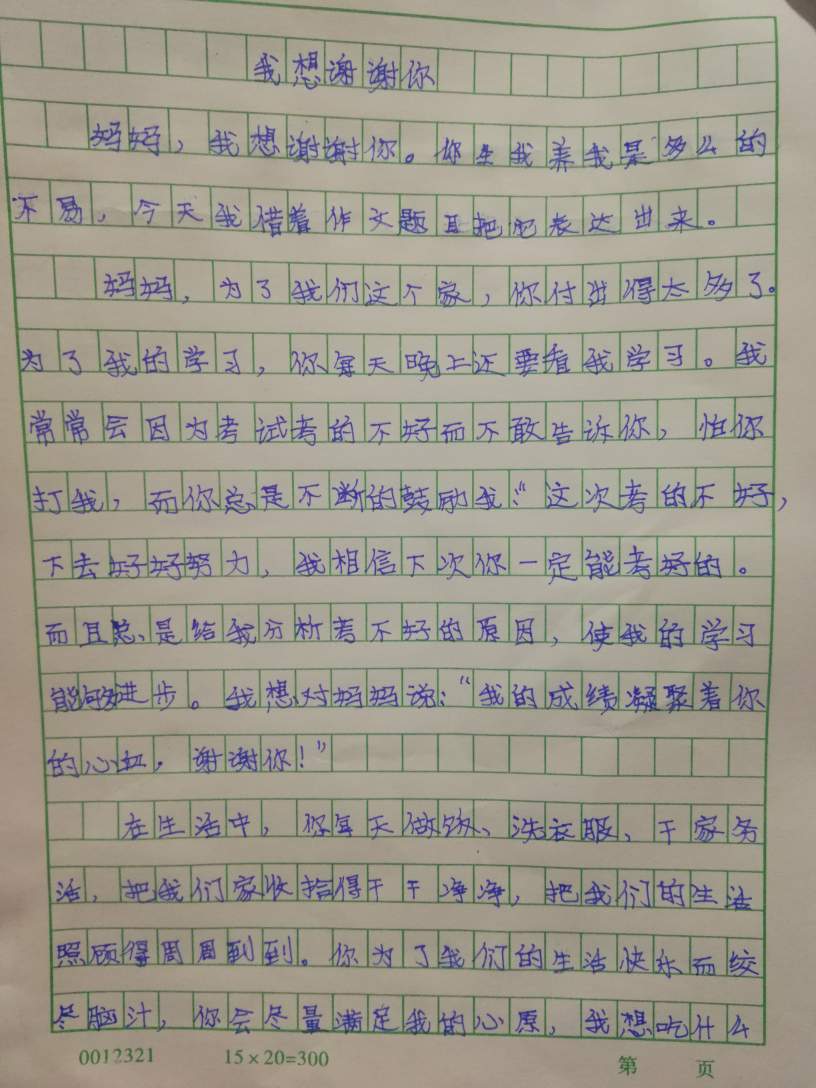 我想谢谢你
妈妈，我想谢谢你。你生我养我是多么的
不易，今天我借着作文题目把它表达出来。
妈妈，为了我们这个家，你付出得太多了。
为了我的学习，你每天晚上还要看我学习。我
常常会因为考试考的不好而不敢告诉你，怕你
打我，而你总是不断的鼓励我：“这次考的不好，
下去好好努力，我相信下次你一定能考好的。
而且总是给我分析考不好的原因，使我的学习
能够进步。我想对妈妈说：“我的成绩凝聚着你
的心血，谢谢你！”
在生活中，你每天做饭、洗衣服、干家务
活，把我们家收拾得干干净净，把我们的生活
照顾得周周到到。你为了我们的生活快乐而绞
尽脑汁，你会尽量满足我的心原，我想吃什么
0012321 15×20=300 第 页